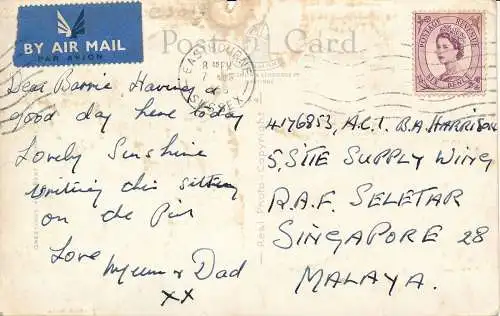 BY AIR MAIL
PAR AVION
Post Card
EASTBOURNE
SUSSEX
POSTAGE REVENUE
SIX PENCE
Dear Barrie, Having a
good day here today
Lovely Sunshine
writing this sitting
on the Pier
Love
Mum & Dad
XX
4176853, A.C.1. B.A. HARRISON
5, SITE SUPPLY WING
R.A.F. SELETAR
SINGAPORE 28
MALAYA.
Real Photo